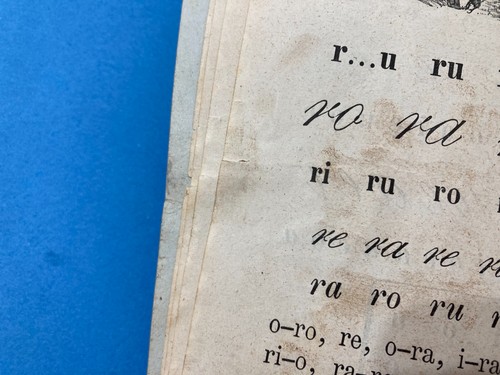 r...u ru
ro ra
ri ru ro
re ra re
ra ro ru
o–ro, re, o–ra, i–ra
ri–o,